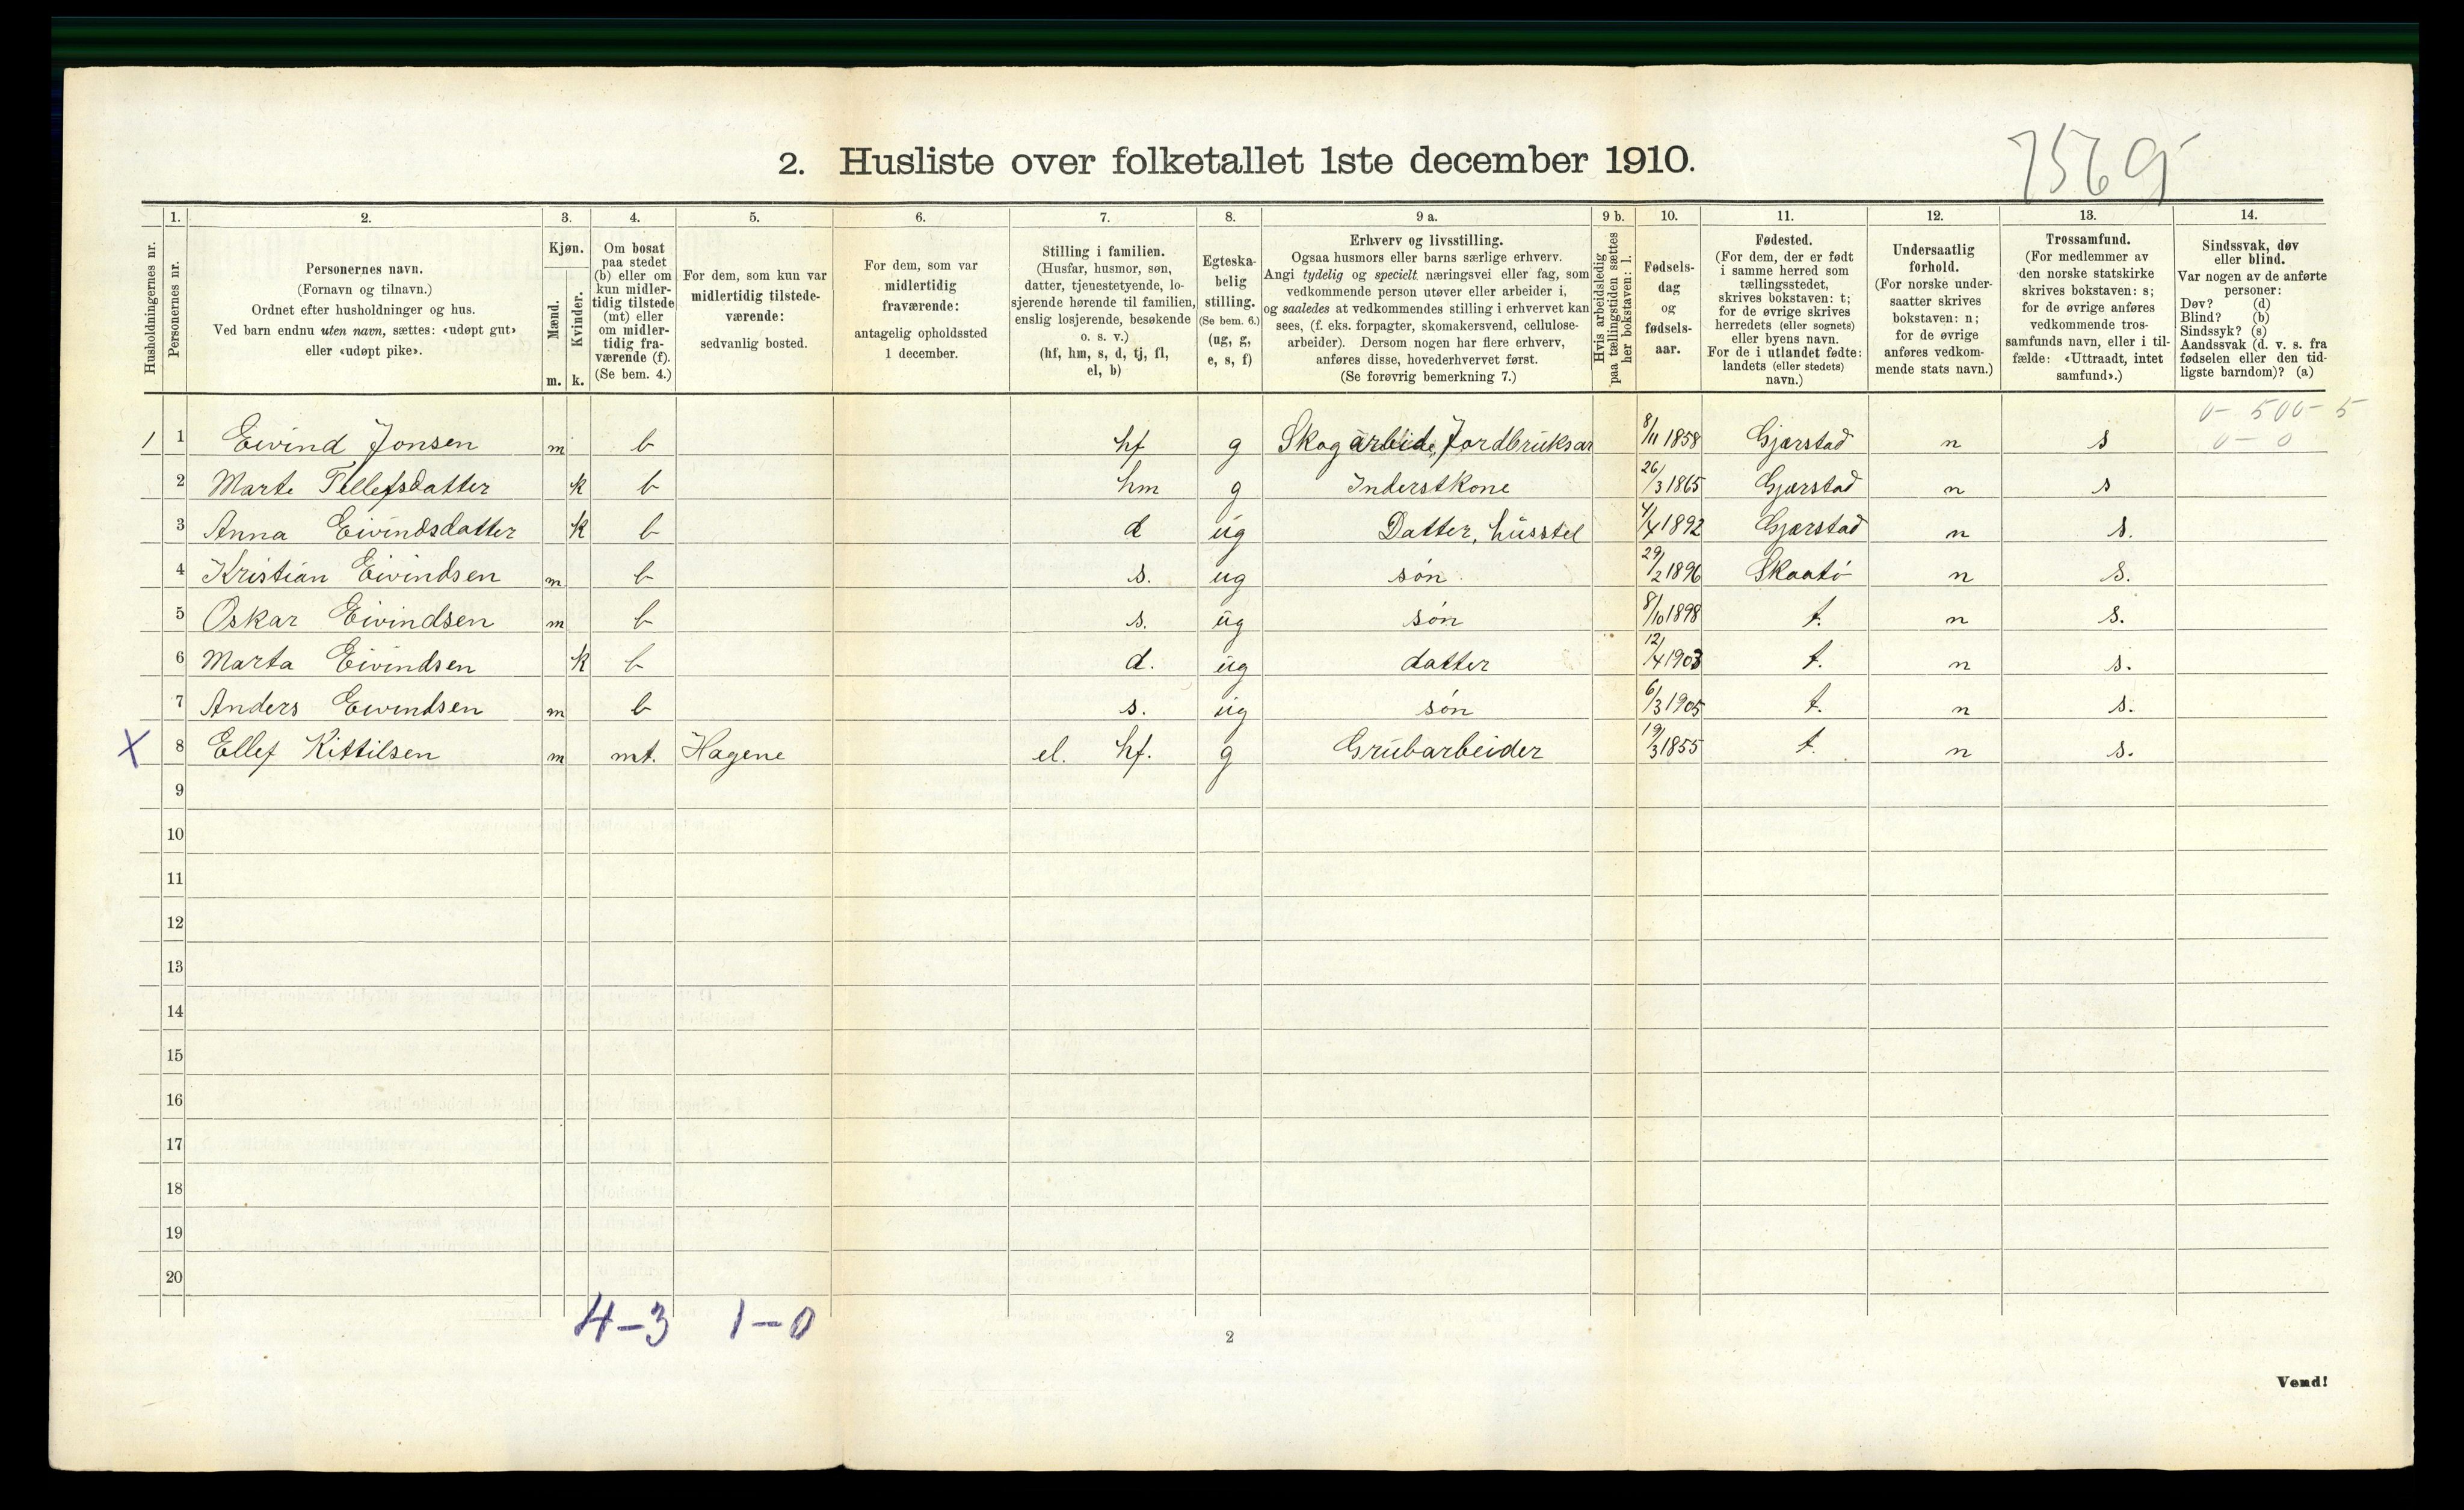 7569
2. Husliste over folketallet 1ste december 1910.
1. 2. 3. 4. 5. 6. 7. 8. 9 a. 9 b. 10. 11. 12. 13. 14.
Husholdningernes nr.
Personernes nr.
Personernes navn.
(Fornavn og tilnavn.)
Ordnet efter husholdninger og hus.
Ved barn endnu uten navn, sættes: «udøpt gut»
eller «udøpt pike».
Kjøn.
Mænd.
Kvinder.
m. k.
Om bosat
paa stedet
(b) eller om
kun midler-
tidig tilstede
(mt) eller
om midler-
tidig fra-
værende (f).
(Se bem. 4.)
For dem, som kun var
midlertidig tilstede-
værende:
sedvanlig bosted.
For dem, som var
midlertidig
fraværende:
antagelig opholdssted
1 december.
Stilling i familien.
(Husfar, husmor, søn,
datter, tjenestetyende, lo-
sjerende hørende til familien,
enslig losjerende, besøkende
o. s. v.)
(hf, hm, s, d, tj, fl,
el, b)
Egteska-
belig
stilling.
(Se bem. 6.)
(ug, g,
e, s, f)
Erhverv og livsstilling.
Ogsaa husmors eller barns særlige erhverv.
Angi tydelig og specielt næringsvei eller fag, som
vedkommende person utøver eller arbeider i,
og saaledes at vedkommendes stilling i erhvervet kan
sees, (f. eks. forpagter, skomakersvend, cellulose-
arbeider). Dersom nogen har flere erhverv,
anføres disse, hovederhvervet først.
(Se forøvrig bemerkning 7.)
Hvis arbeidsledig
paa tællingstiden sættes
her bokstaven: l.
Fødsels-
dag
og
fødsels-
aar.
Fødested.
(For dem, der er født
i samme herred som
tællingsstedet,
skrives bokstaven: t;
for de øvrige skrives
herredets (eller sognets)
eller byens navn.
For de i utlandet fødte:
landets (eller stedets)
navn.)
Undersaatlig
forhold.
(For norske under-
saatter skrives
bokstaven: n;
for de øvrige
anføres vedkom-
mende stats navn.)
Trossamfund.
(For medlemmer av
den norske statskirke
skrives bokstaven: s;
for de øvrige anføres
vedkommende tros-
samfunds navn, eller i til-
fælde: «Uttraadt, intet
samfund».)
Sindssvak, døv
eller blind.
Var nogen av de anførte
personer:
Døv? (d)
Blind? (b)
Sindssyk? (s)
Aandssvak (d. v. s. fra
fødselen eller den tid-
ligste barndom)? (a)
0 - 500 - 5
0 - 0
1 1 Eivind Jonsen m b hf g Skogarbeide, Jordbruksar 8/11 1858 Gjærstad n s
2 Marte Tellefsdatter k b hm g Inderstkone 26/3 1865 Gjærstad n s
3 Anna Eivindsdatter k b d ug Datter, husstel 4/4 1892 Gjærstad n s.
4 Kristian Eivindsen m b s. ug søn 29/2 1896 Skaatø n s.
5 Oskar Eivindsen m b s. ug søn 8/10 1898 t. n s.
6 Marta Eivindsen k b d. ug datter 12/4 1903 t. n s.
7 Anders Eivindsen m b s. ug søn 6/3 1905 t. n s.
X 8 Ellef Kittilsen m mt. Hagene el. hf. g Grubarbeider 19/3 1855 t. n s.
9
10
11
12
13
14
15
16
17
18
19
20
4-3 1-0
2
Vend!